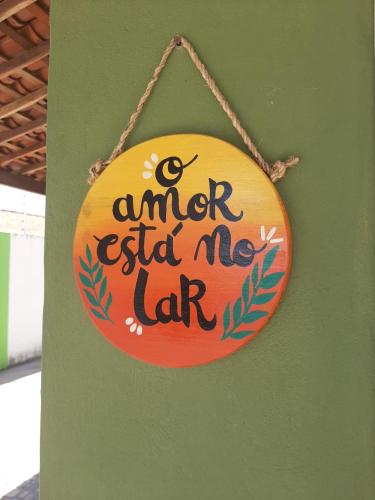 o
amoR
está no
LaR